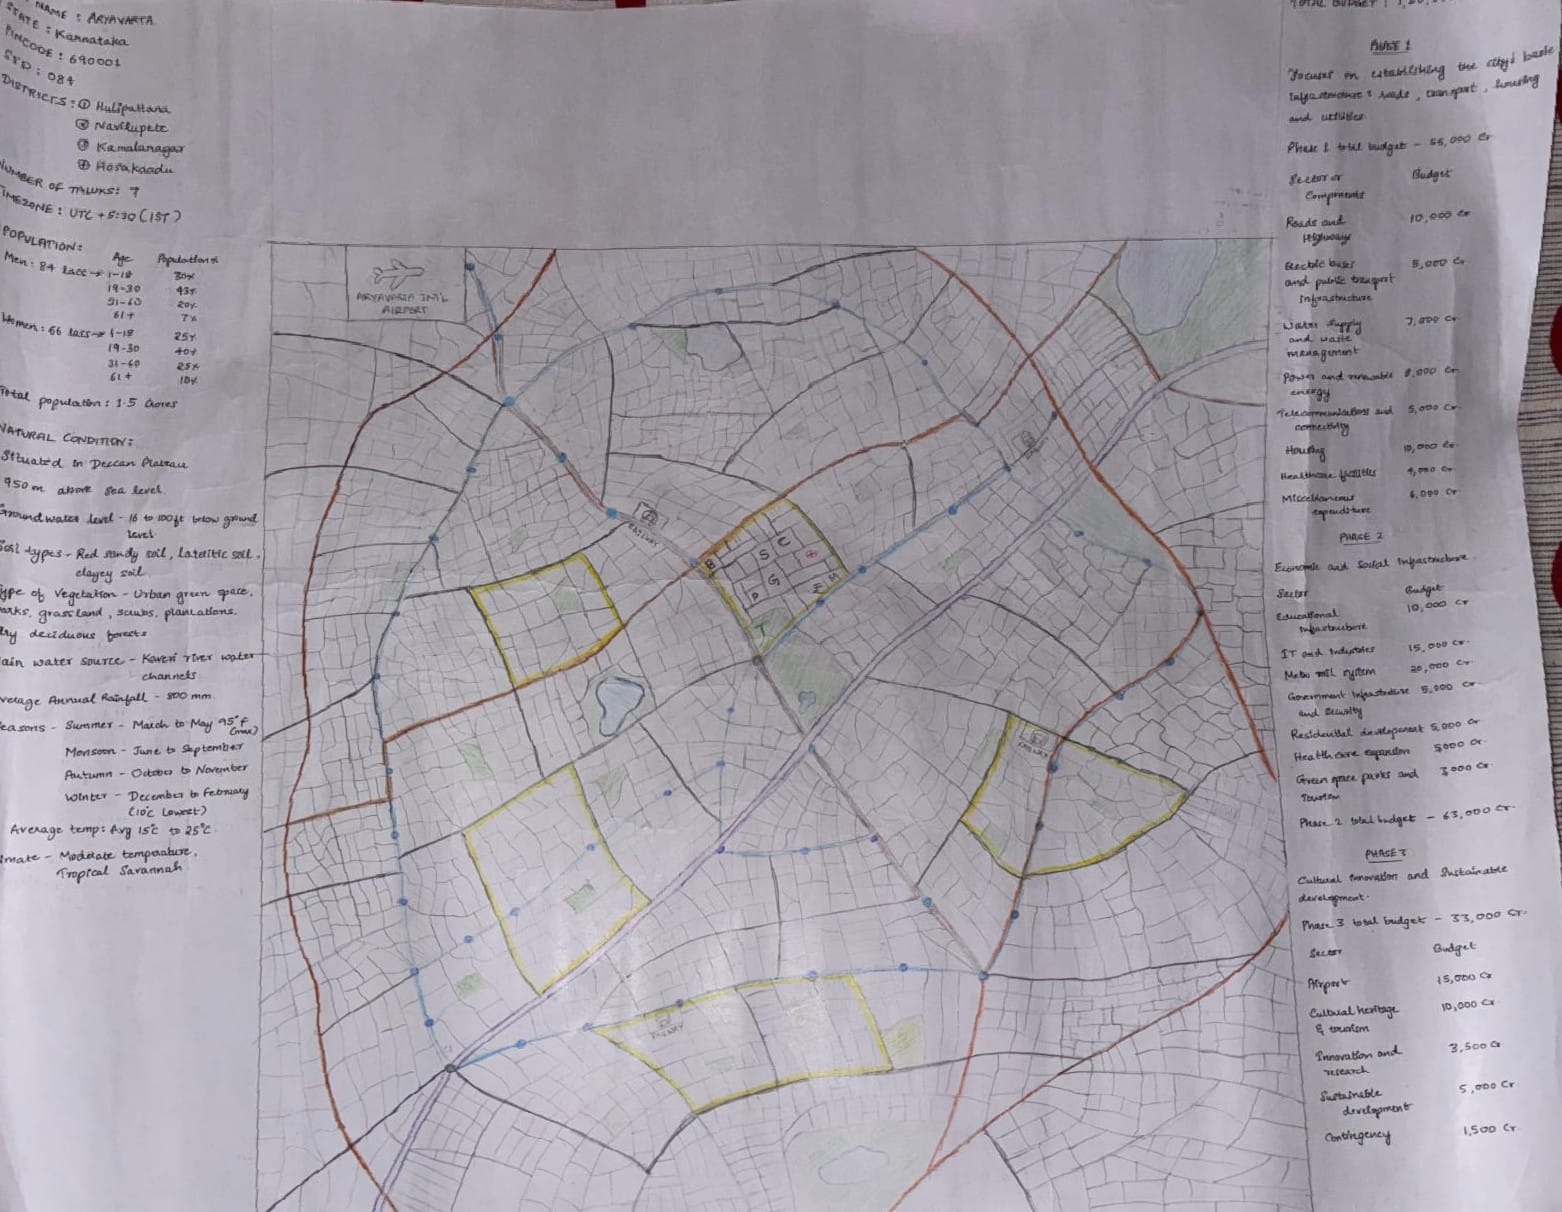 NAME : ARYAVARTA
STATE : Karnataka
PINCODE : 690001
STD : 084
DISTRICTS : ① Hulipattana
② Navilupete
③ Kamalanagar
④ Hosakaadu
NUMBER OF TALUKS: 9
TIMEZONE : UTC +5:30 (IST)
POPULATION:
Age Population%
Men : 84 lacs → 1-18 30%
19-30 43%
31-60 20%
61+ 7%
Women : 66 lacs → 1-18 25%
19-30 40%
31-60 25%
61+ 10%
Total population : 1.5 Crores
NATURAL CONDITION:
Situated in Deccan Plateau
950 m above sea level.
Ground water level - 16 to 100ft below ground
level
Soil types - Red sandy soil, lateritic soil,
clayey soil
ype of Vegetation - Urban green space,
arks, grassland, scrubs, plantations,
dry deciduous forests
ain water source - Kaveri river water
channels
verage Annual Rainfall - 800 mm.
easons - Summer - March to May 95°F
(max)
Monsoon - June to September
Autumn - October to November
Winter - December to February
(10°C Lowest)
Average temp : Avg 15°C to 25°C.
imate - Moderate temperature,
Tropical Savannah
ARYAVARTA INT'L
AIRPORT
RAILWAY
B
S
C
G
P
M
T
RAILWAY
RAILWAY
TOTAL BUDGET :
PHASE 1
Focuses on establishing the city's basic
infrastructure : roads, transport, housing
and utilities.
Phase 1 total budget - 55,000 Cr
Sector or Budget
Components
Roads and 10,000 Cr
Highways
Electric buses 5,000 Cr
and public transport
infrastructure
Water Supply 7,000 Cr
and waste
management
Power and renewable 8,000 Cr
energy
Telecommunications and 5,000 Cr
connectivity
Housing 10,000 Cr
Healthcare facilities 4,000 Cr
Miscellaneous 6,000 Cr
expenditure
PHASE 2
Economic and Social Infrastructure.
Sector Budget
Educational 10,000 Cr
Infrastructure
IT and Industries 15,000 Cr
Metro rail system 20,000 Cr
Government Infrastructure 5,000 Cr
and Security
Residential development 5,000 Cr
Health care expansion 5000 Cr
Green space parks and 3000 Cr
Tourism
Phase 2 total budget - 63,000 Cr
PHASE 3
Cultural Innovation and Sustainable
development.
Phase 3 total budget - 33,000 Cr.
Sector Budget
Airport 15,000 Cr
Cultural heritage 10,000 Cr
& tourism
Innovation and 3,500 Cr
research
Sustainable 5,000 Cr
development
Contingency 1,500 Cr